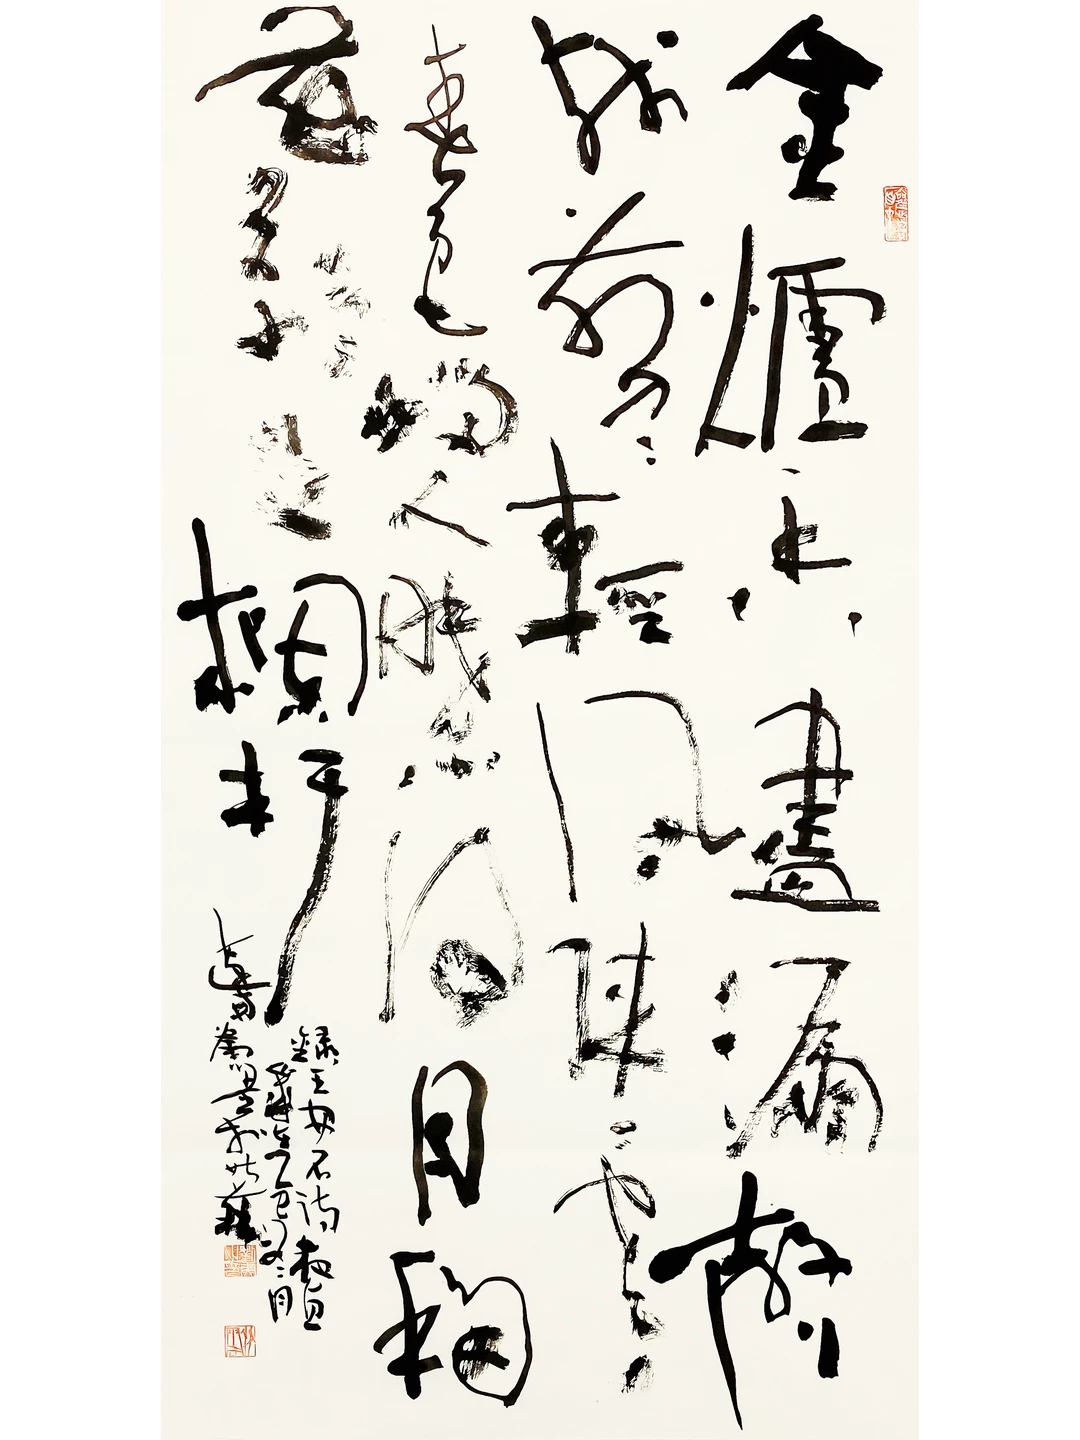 金爐香盡漏聲
殘翦翦輕風陣陣寒
春色惱人眠不得月移
花影上欄杆
錄王安石詩夜直
乙巳 二月